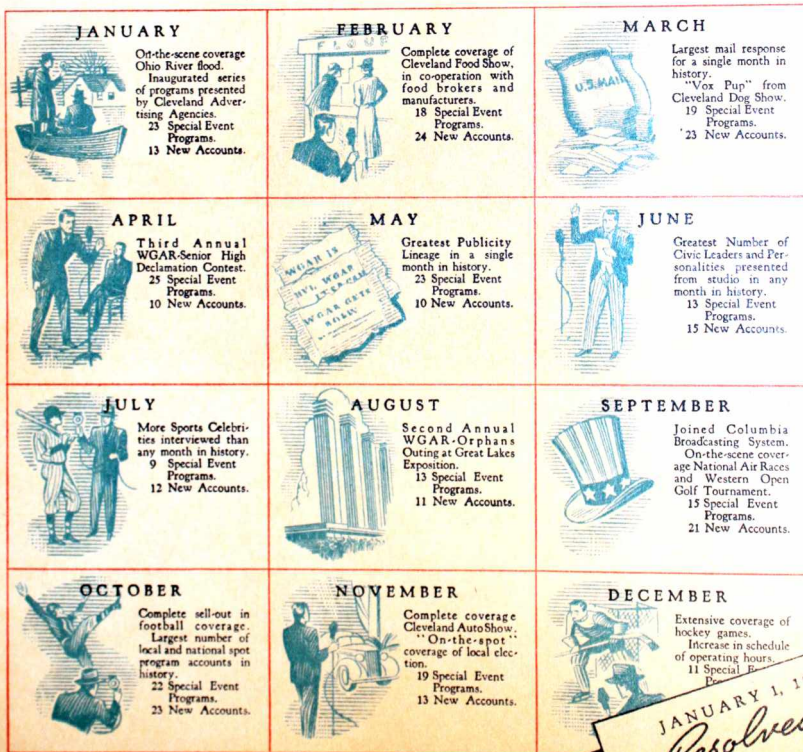 JANUARY
On-the-scene coverage
Ohio River flood.
Inaugurated series
of programs presented
by Cleveland Adver-
tising Agencies.
23 Special Event
Programs.
13 New Accounts.
FEBRUARY
FLOUR
Complete coverage of
Cleveland Food Show,
in co-operation with
food brokers and
manufacturers.
18 Special Event
Programs.
24 New Accounts.
MARCH
U.S. MAIL
Largest mail response
for a single month in
history.
"Vox Pup" from
Cleveland Dog Show.
19 Special Event
Programs.
23 New Accounts.
APRIL
Third Annual
WGAR-Senior High
Declamation Contest.
25 Special Event
Programs.
10 New Accounts.
MAY
WGAR IS
WGAR
WGAR GETS
Greatest Publicity
Lineage in a single
month in history.
23 Special Event
Programs.
10 New Accounts.
JUNE
Greatest Number of
Civic Leaders and Per-
sonalities presented
from studio in any
month in history.
13 Special Event
Programs.
15 New Accounts.
JULY
More Sports Celebri-
ties interviewed than
any month in history.
9 Special Event
Programs.
12 New Accounts.
AUGUST
Second Annual
WGAR-Orphans
Outing at Great Lakes
Exposition.
13 Special Event
Programs.
11 New Accounts.
SEPTEMBER
Joined Columbia
Broadcasting System.
On-the-scene cover-
age National Air Races
and Western Open
Golf Tournament.
15 Special Event
Programs.
21 New Accounts.
OCTOBER
Complete sell-out in
football coverage.
Largest number of
local and national spot
program accounts in
history.
22 Special Event
Programs.
23 New Accounts.
NOVEMBER
Complete coverage
Cleveland Auto Show.
"On-the-spot"
coverage of local elec-
tion.
19 Special Event
Programs.
13 New Accounts.
DECEMBER
Extensive coverage of
hockey games.
Increase in schedule
of operating hours.
11 Special
JANUARY 1, 1
Resolved